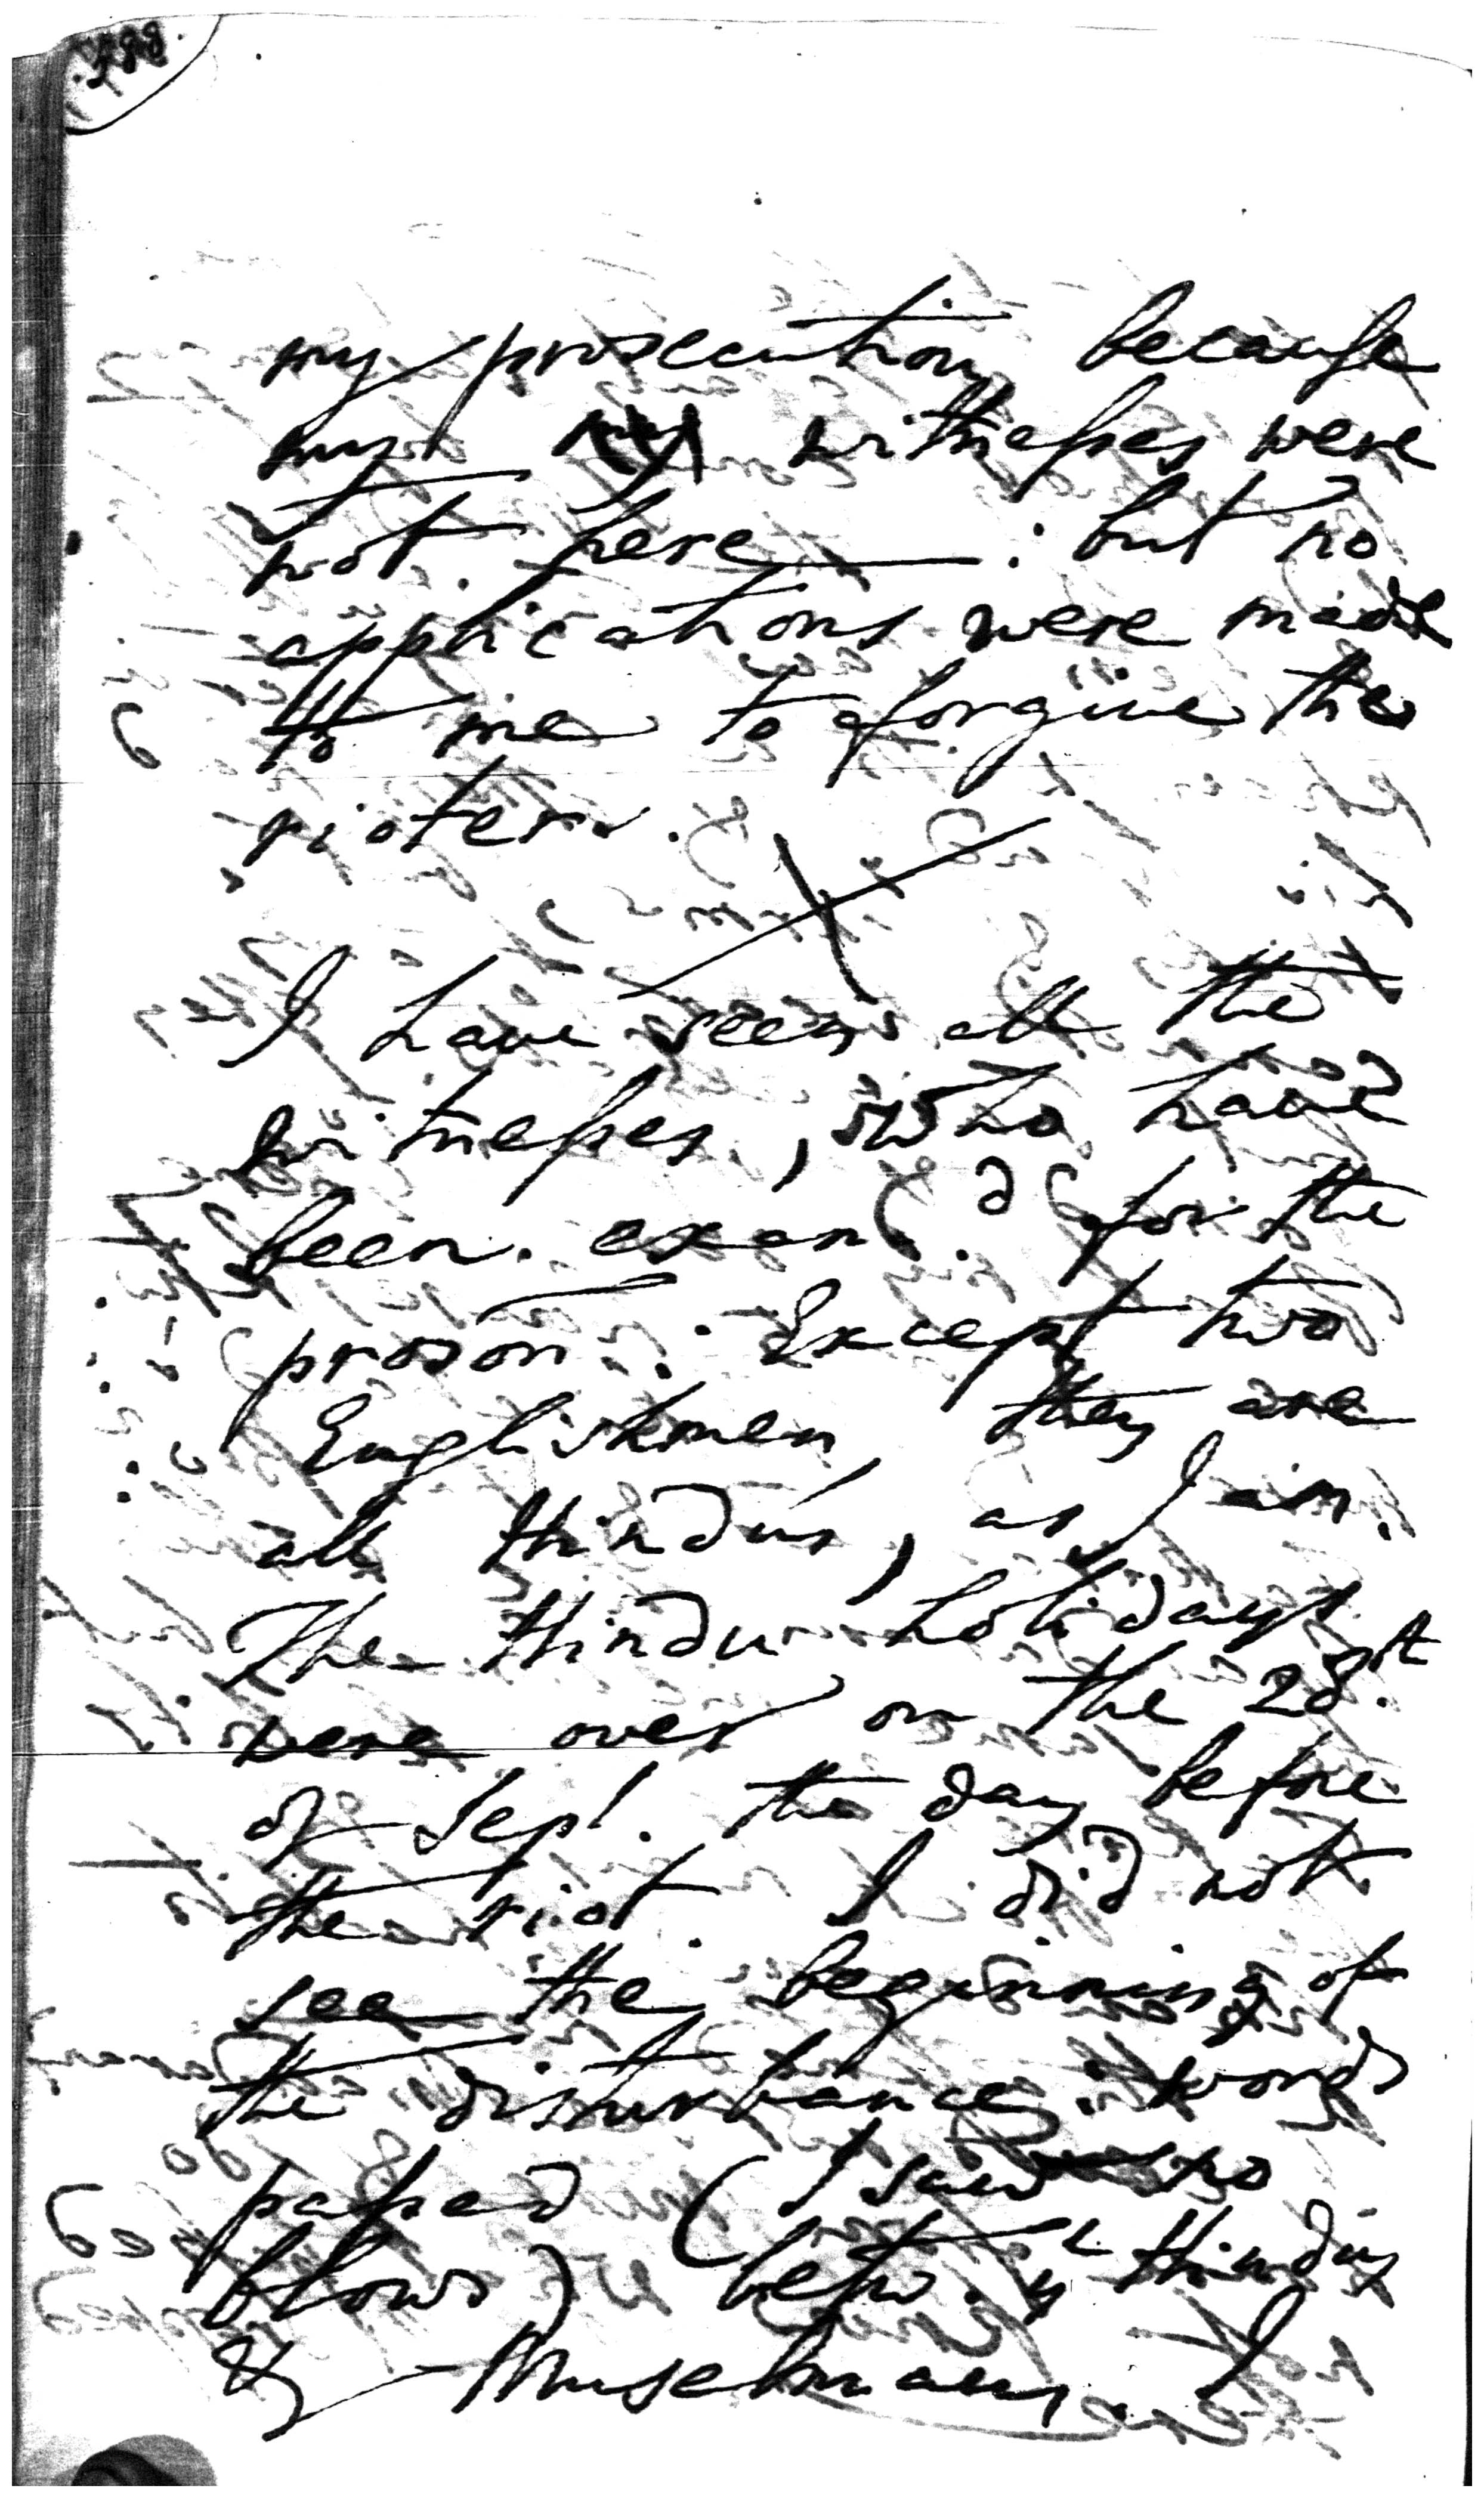 my prosecution, because
my witnesses were
not here: but no
applications were made
to me to forgive the
rioters.
I have seen all the
witnesses, who have
been exam.d for the
proson. Except two
Englishmen they are
all Hindus, as I am.
The Hindu holidays
were over on the 28.
of Sept. the day before
the riot. I did not
see the beginning of
the disturbance: words
passed (I saw no
blows) betw. ye Hindus
& Muselmans. I